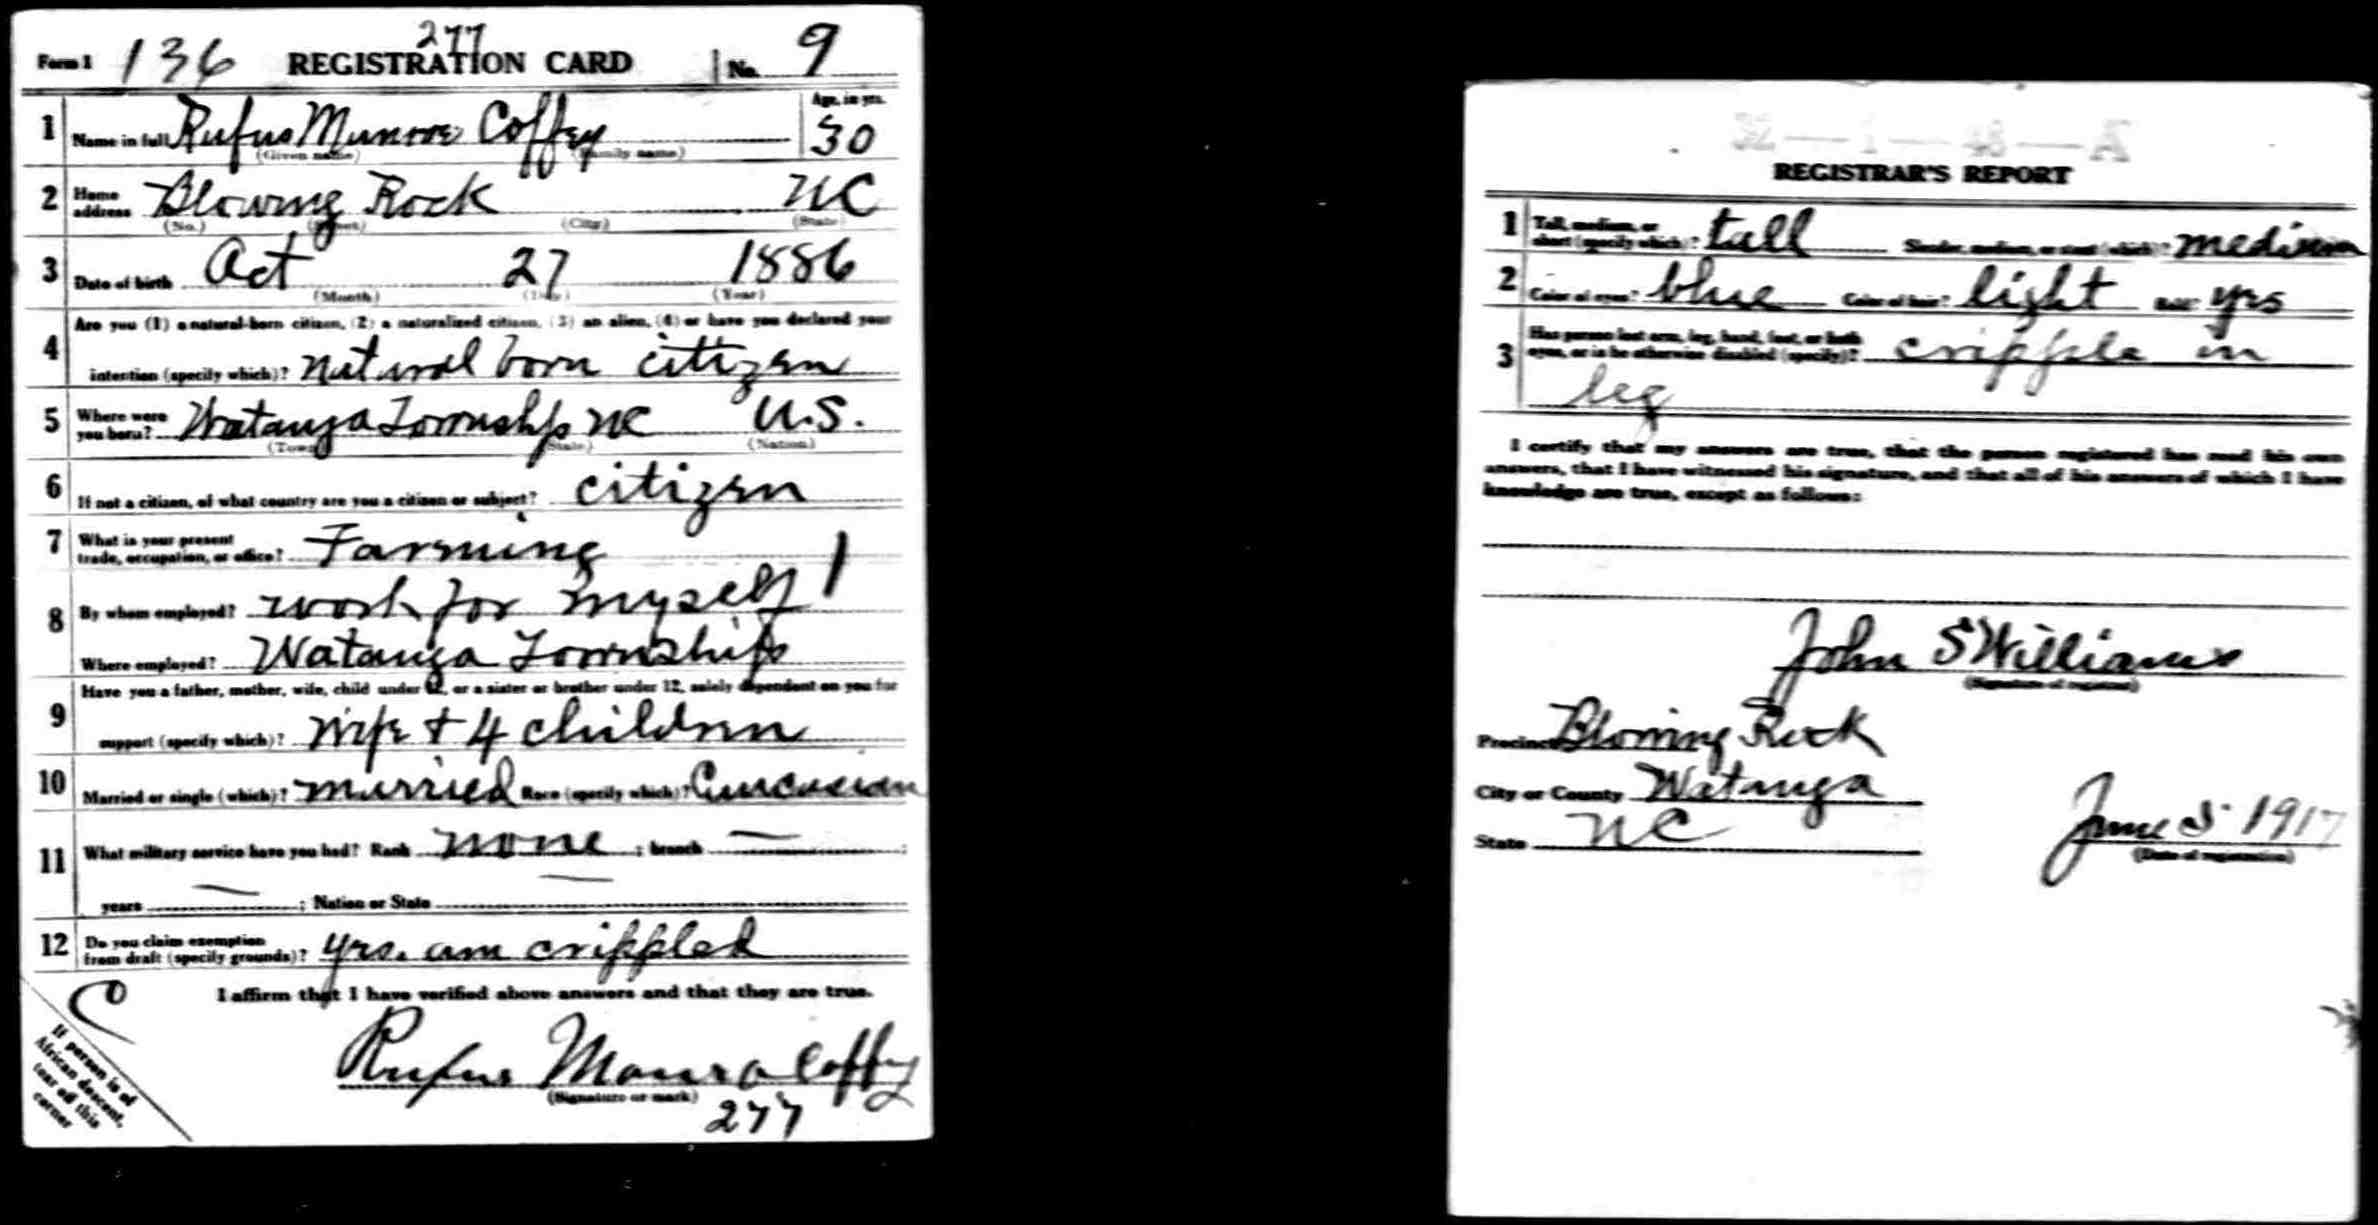 277
Form 1 136 REGISTRATION CARD No. 9
1 Name in full Rufus Munroe Coffey Age, in yrs. 30
(Given name) (Family name)
2 Home address Blowing Rock NC
(No.) (Street) (City) (State)
3 Date of birth Oct 27 1886
(Month) (Day) (Year)
4 Are you (1) a natural-born citizen, (2) a naturalized citizen, (3) an alien, (4) or have you declared your
intention (specify which)? natural born citizen
5 Where were you born? Watauga Township NC U.S.
(Town) (State) (Nation)
6 If not a citizen, of what country are you a citizen or subject? citizen
7 What is your present trade, occupation, or office? Farming
8 By whom employed? work for myself 1
Where employed? Watauga Township
9 Have you a father, mother, wife, child under 12, or a sister or brother under 12, solely dependent on you for
support (specify which)? wife + 4 children
10 Married or single (which)? married Race (specify which)? Caucasian
11 What military service have you had? Rank none ; branch — ;
years — ; Nation or State —
12 Do you claim exemption from draft (specify grounds)? yes. am crippled
I affirm that I have verified above answers and that they are true.
Rufus Monro Coffey
(Signature or mark)
277
C
If person is of
African descent,
tear off this
corner
REGISTRAR'S REPORT
1 Tall, medium, or short (specify which)? tall Slender, medium, or stout (which)? medium
2 Color of eyes? blue Color of hair? light Bald? yes
3 Has person lost arm, leg, hand, foot, or both
eyes, or is he otherwise disabled (specify)? cripple in
leg
I certify that my answers are true, that the person registered has read his own
answers, that I have witnessed his signature, and that all of his answers of which I have
knowledge are true, except as follows:
John S Williams
(Signature of registrar)
Precinct Blowing Rock
City or County Watauga
State NC
June 5 1917
(Date of registration)